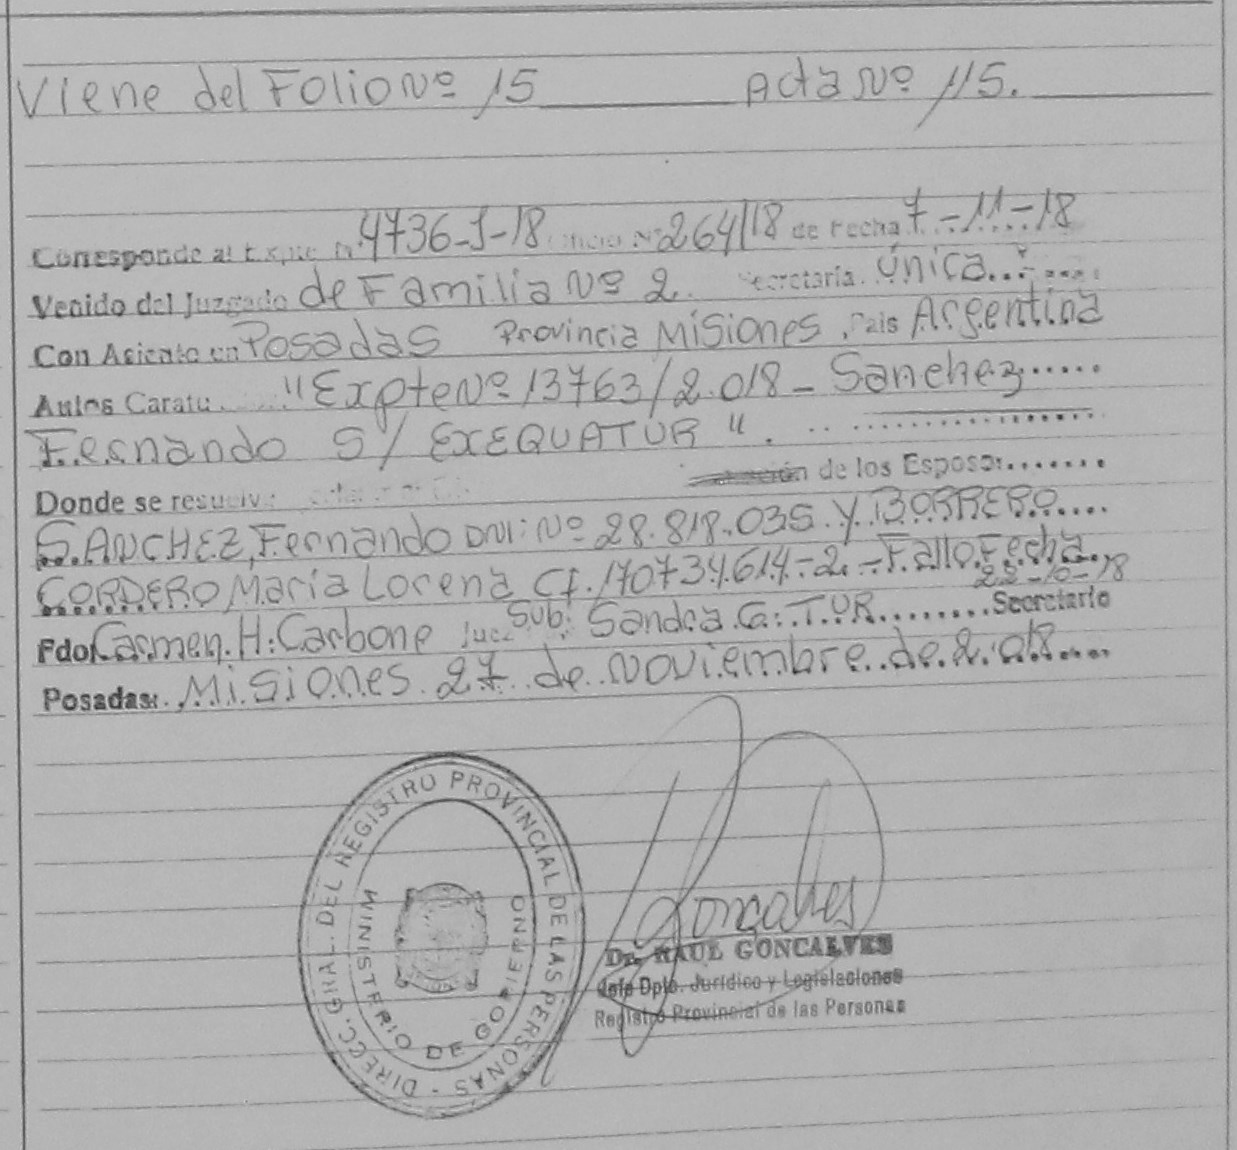 Viene del Folio Nº 15 Acta Nº 115.
Corresponde al Expte Nº 4736-J-18 Oficio Nº 264/18 de Fecha 7-11-18
Venido del Juzgado de Familia Nº 2 Secretaría Única
Con Asiento en Posadas Provincia Misiones, Pais Argentina
Autos Caratu "Expte Nº 13763/2.018 - Sanchez
Fernando S/ EXEQUATUR".
Donde se resuelve de los Esposos
SANCHEZ, Fernando DNI: Nº 28.818.035 Y BORRERO
CORDERO Maria Lorena CI. 170734614-2.- Fallo Fecha
22-10-18
Fdo Carmen H. Carbone Juez Sub. Sandra G. TUR Secretario
Posadas: Misiones 27 de Noviembre de 2.018
DIRECC. GRAL. DEL REGISTRO PROVINCIAL DE LAS PERSONAS -
MINISTERIO DE GOBIERNO
Goncalves
Dr. RAUL GONCALVES
Jefe Dpto. Jurídico y Legislaciones
Registro Provincial de las Personas